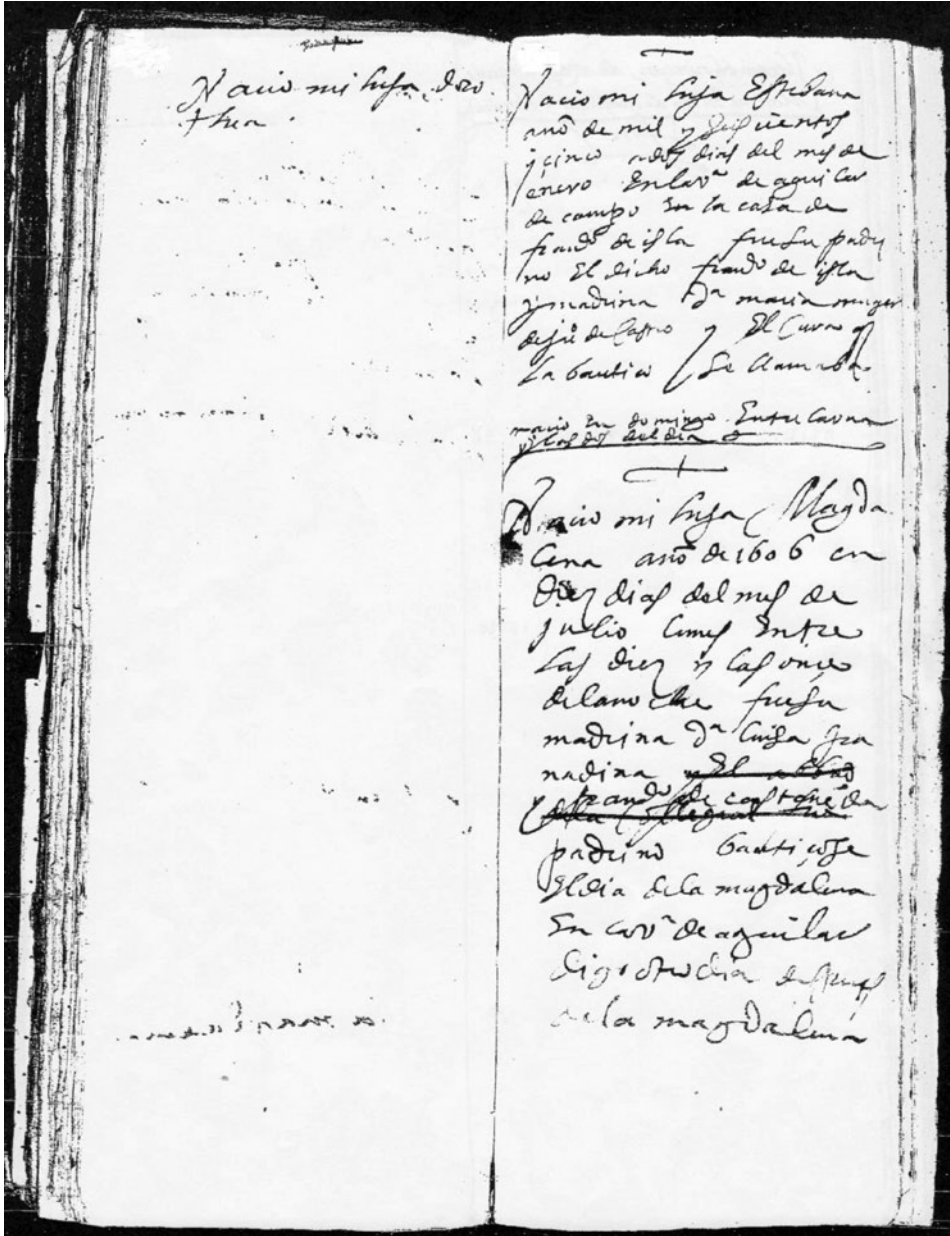 Nacio mi hija doro
thea
Nacio mi hija Estebana
año de mil y seisçientos
y cinco a dos dias del mes de
enero En la vª de aguilar
de campo En la casa de
franᶜᵒ de isla fue su padri
no El dicho franᶜᵒ de isla
y madrina dª maria muger
de juº de Castro y El Cura q
la bautiço se llamaba
nacio En domingo Entre la una
y las dos del dia
Nacio mi hija Magda
lena año de 1606 en
diez dias del mes de
julio lunes Entre
las diez y las onçe
de la noche fue su
madrina dª luisa gra
nadina y El
y franᶜᵒ de
padrino bautiçose
El dia de la magdalena
En la vª de aguilar
digo otro dia despues
de la magdalena